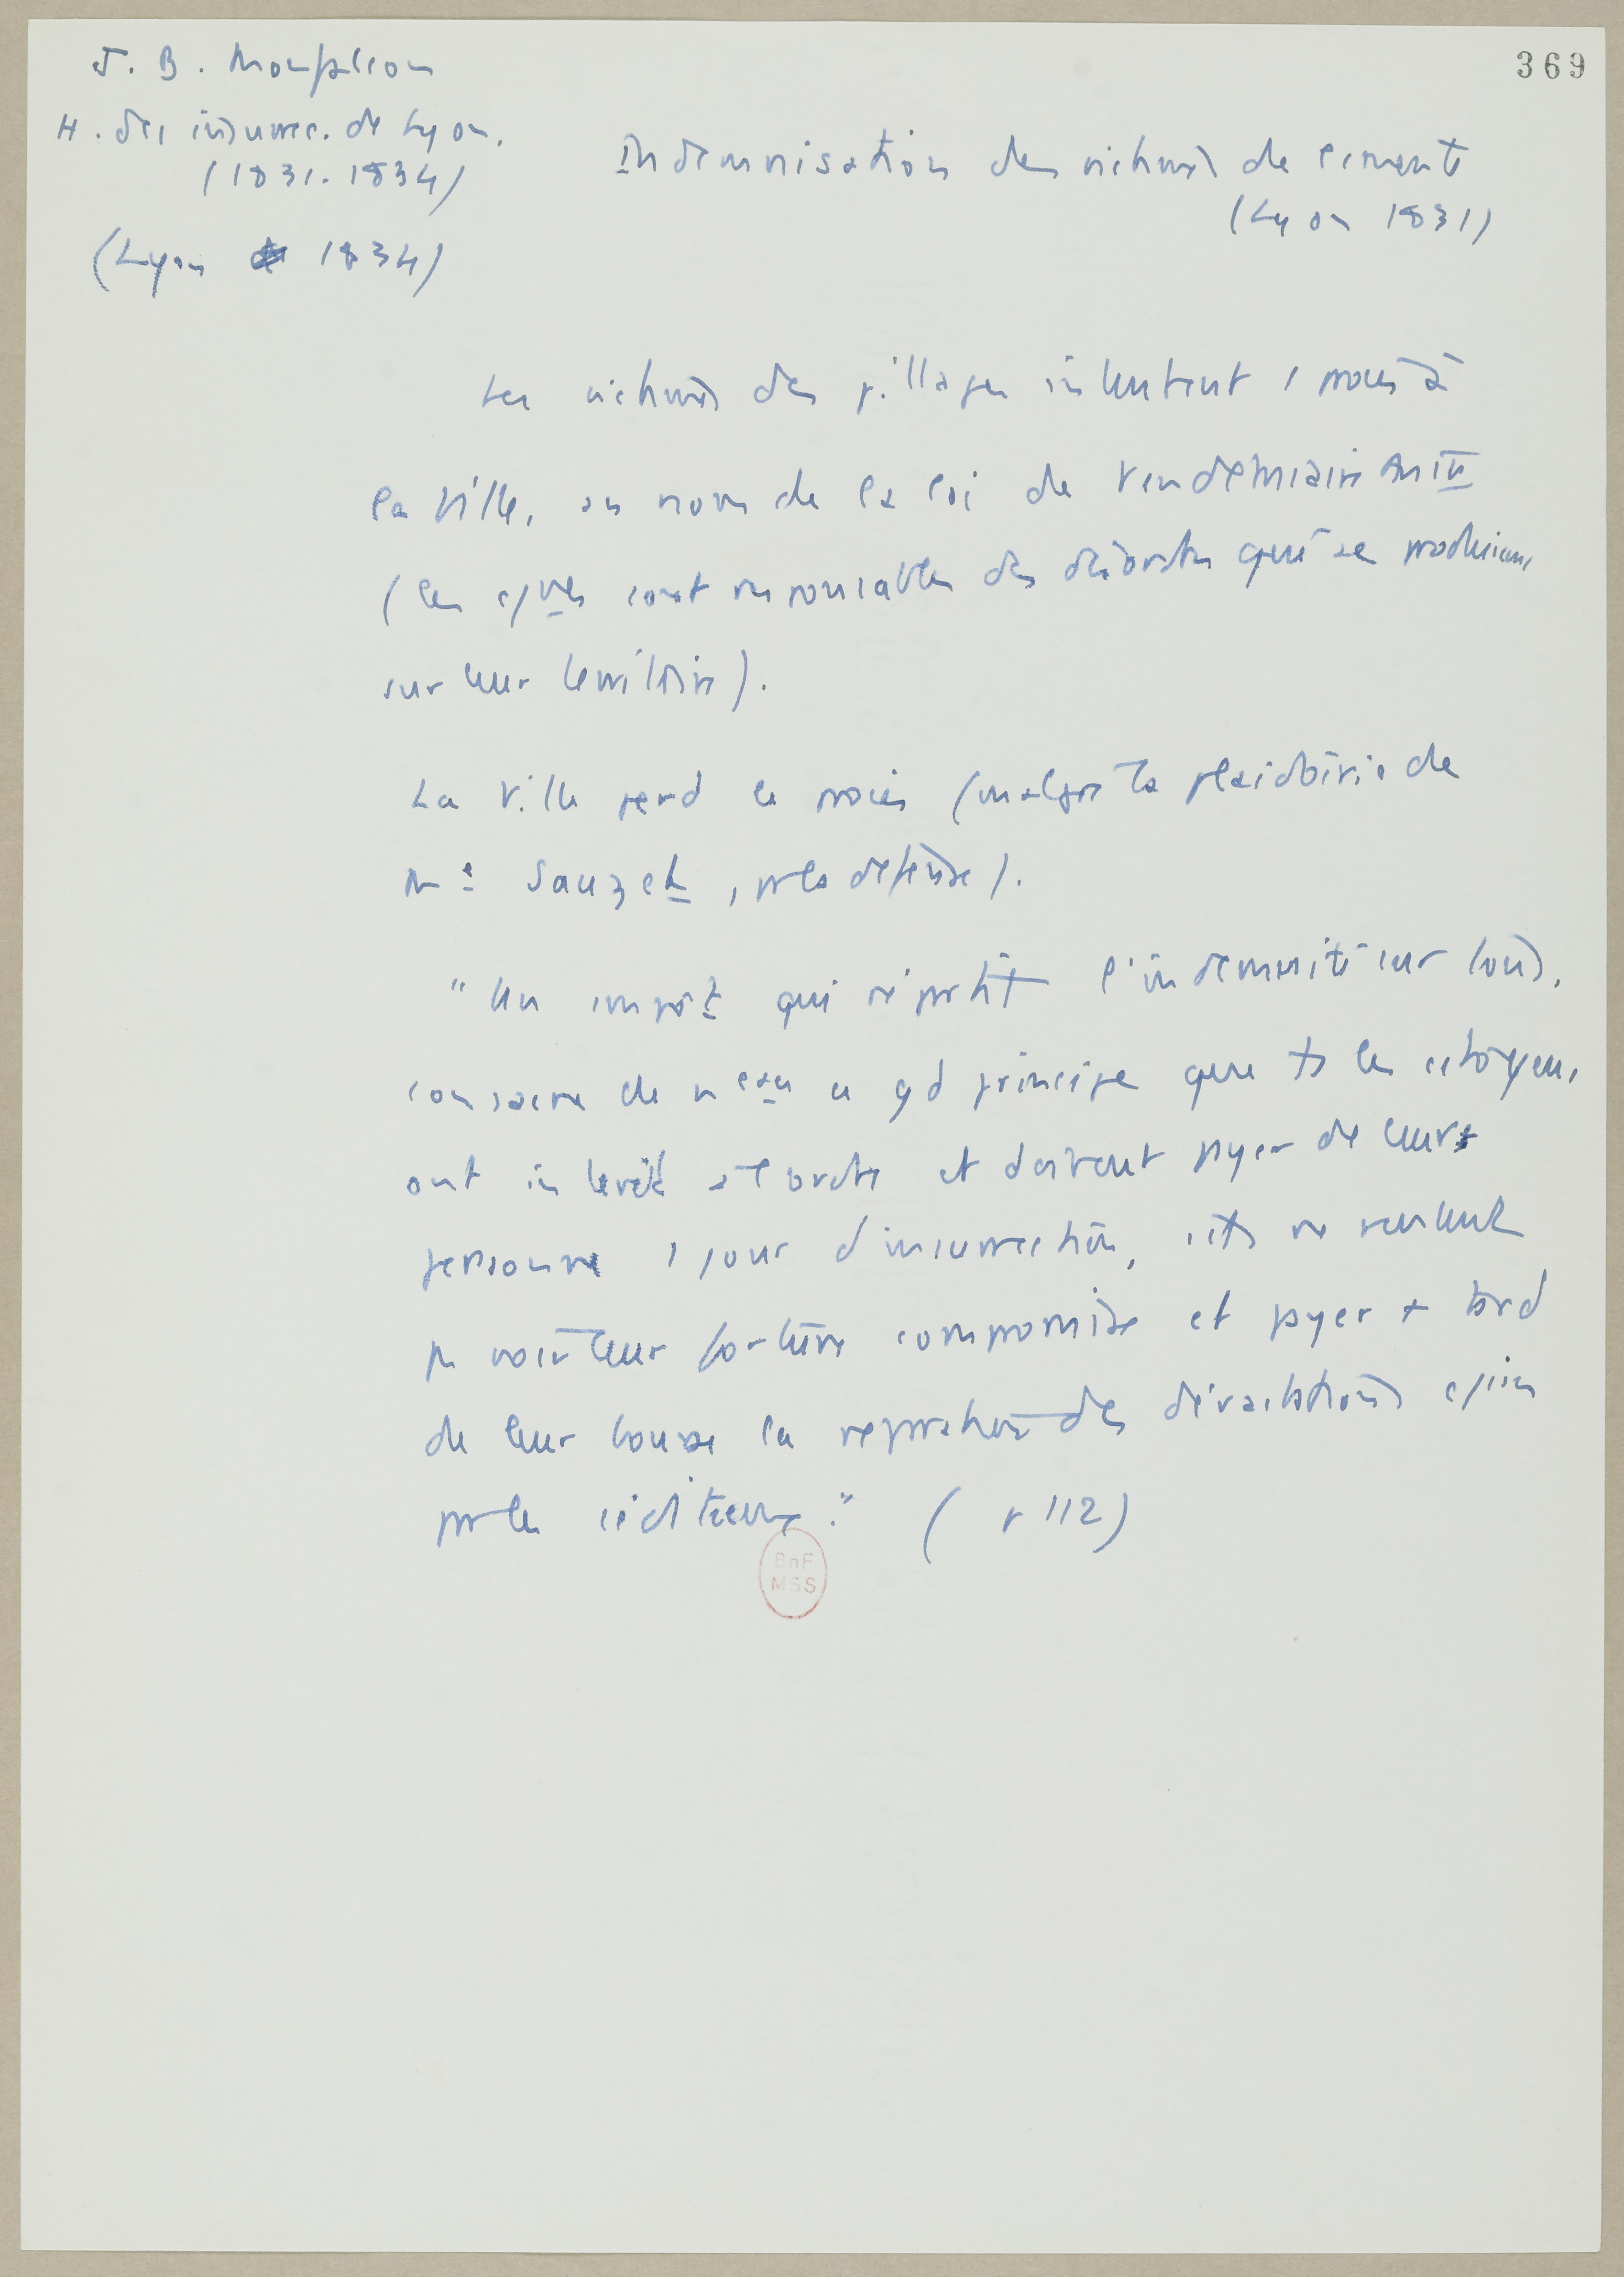 369
J. B. Monfalcon
H. des insurrec. de Lyon.
(1831. 1834)
(Lyon 1834)
Indemnisation des victimes de l'émeute
(Lyon 1831)
Les victimes des pillages intentent 1 procès à
la ville, au nom de la loi de Vendémiaire An IV
(les cnes sont responsables des désordres qui se produisent
sur leur territoire).
La Ville perd le procès (malgré la plaidoirie de
Me Sauzet, pr la défense).
"Un impôt qui répartit l'indemnité sur tous,
consacre de nveau ce gd principe que ts les citoyens
ont intérêt à l'ordre et doivent payer de leur
personne 1 jour d'insurrection, s'ils ne veulent
pas voir leur fortune compromise et payer + tard
de leur bourse la réparation des dévastations
par les séditieux." (p 112)
BnF
MSS